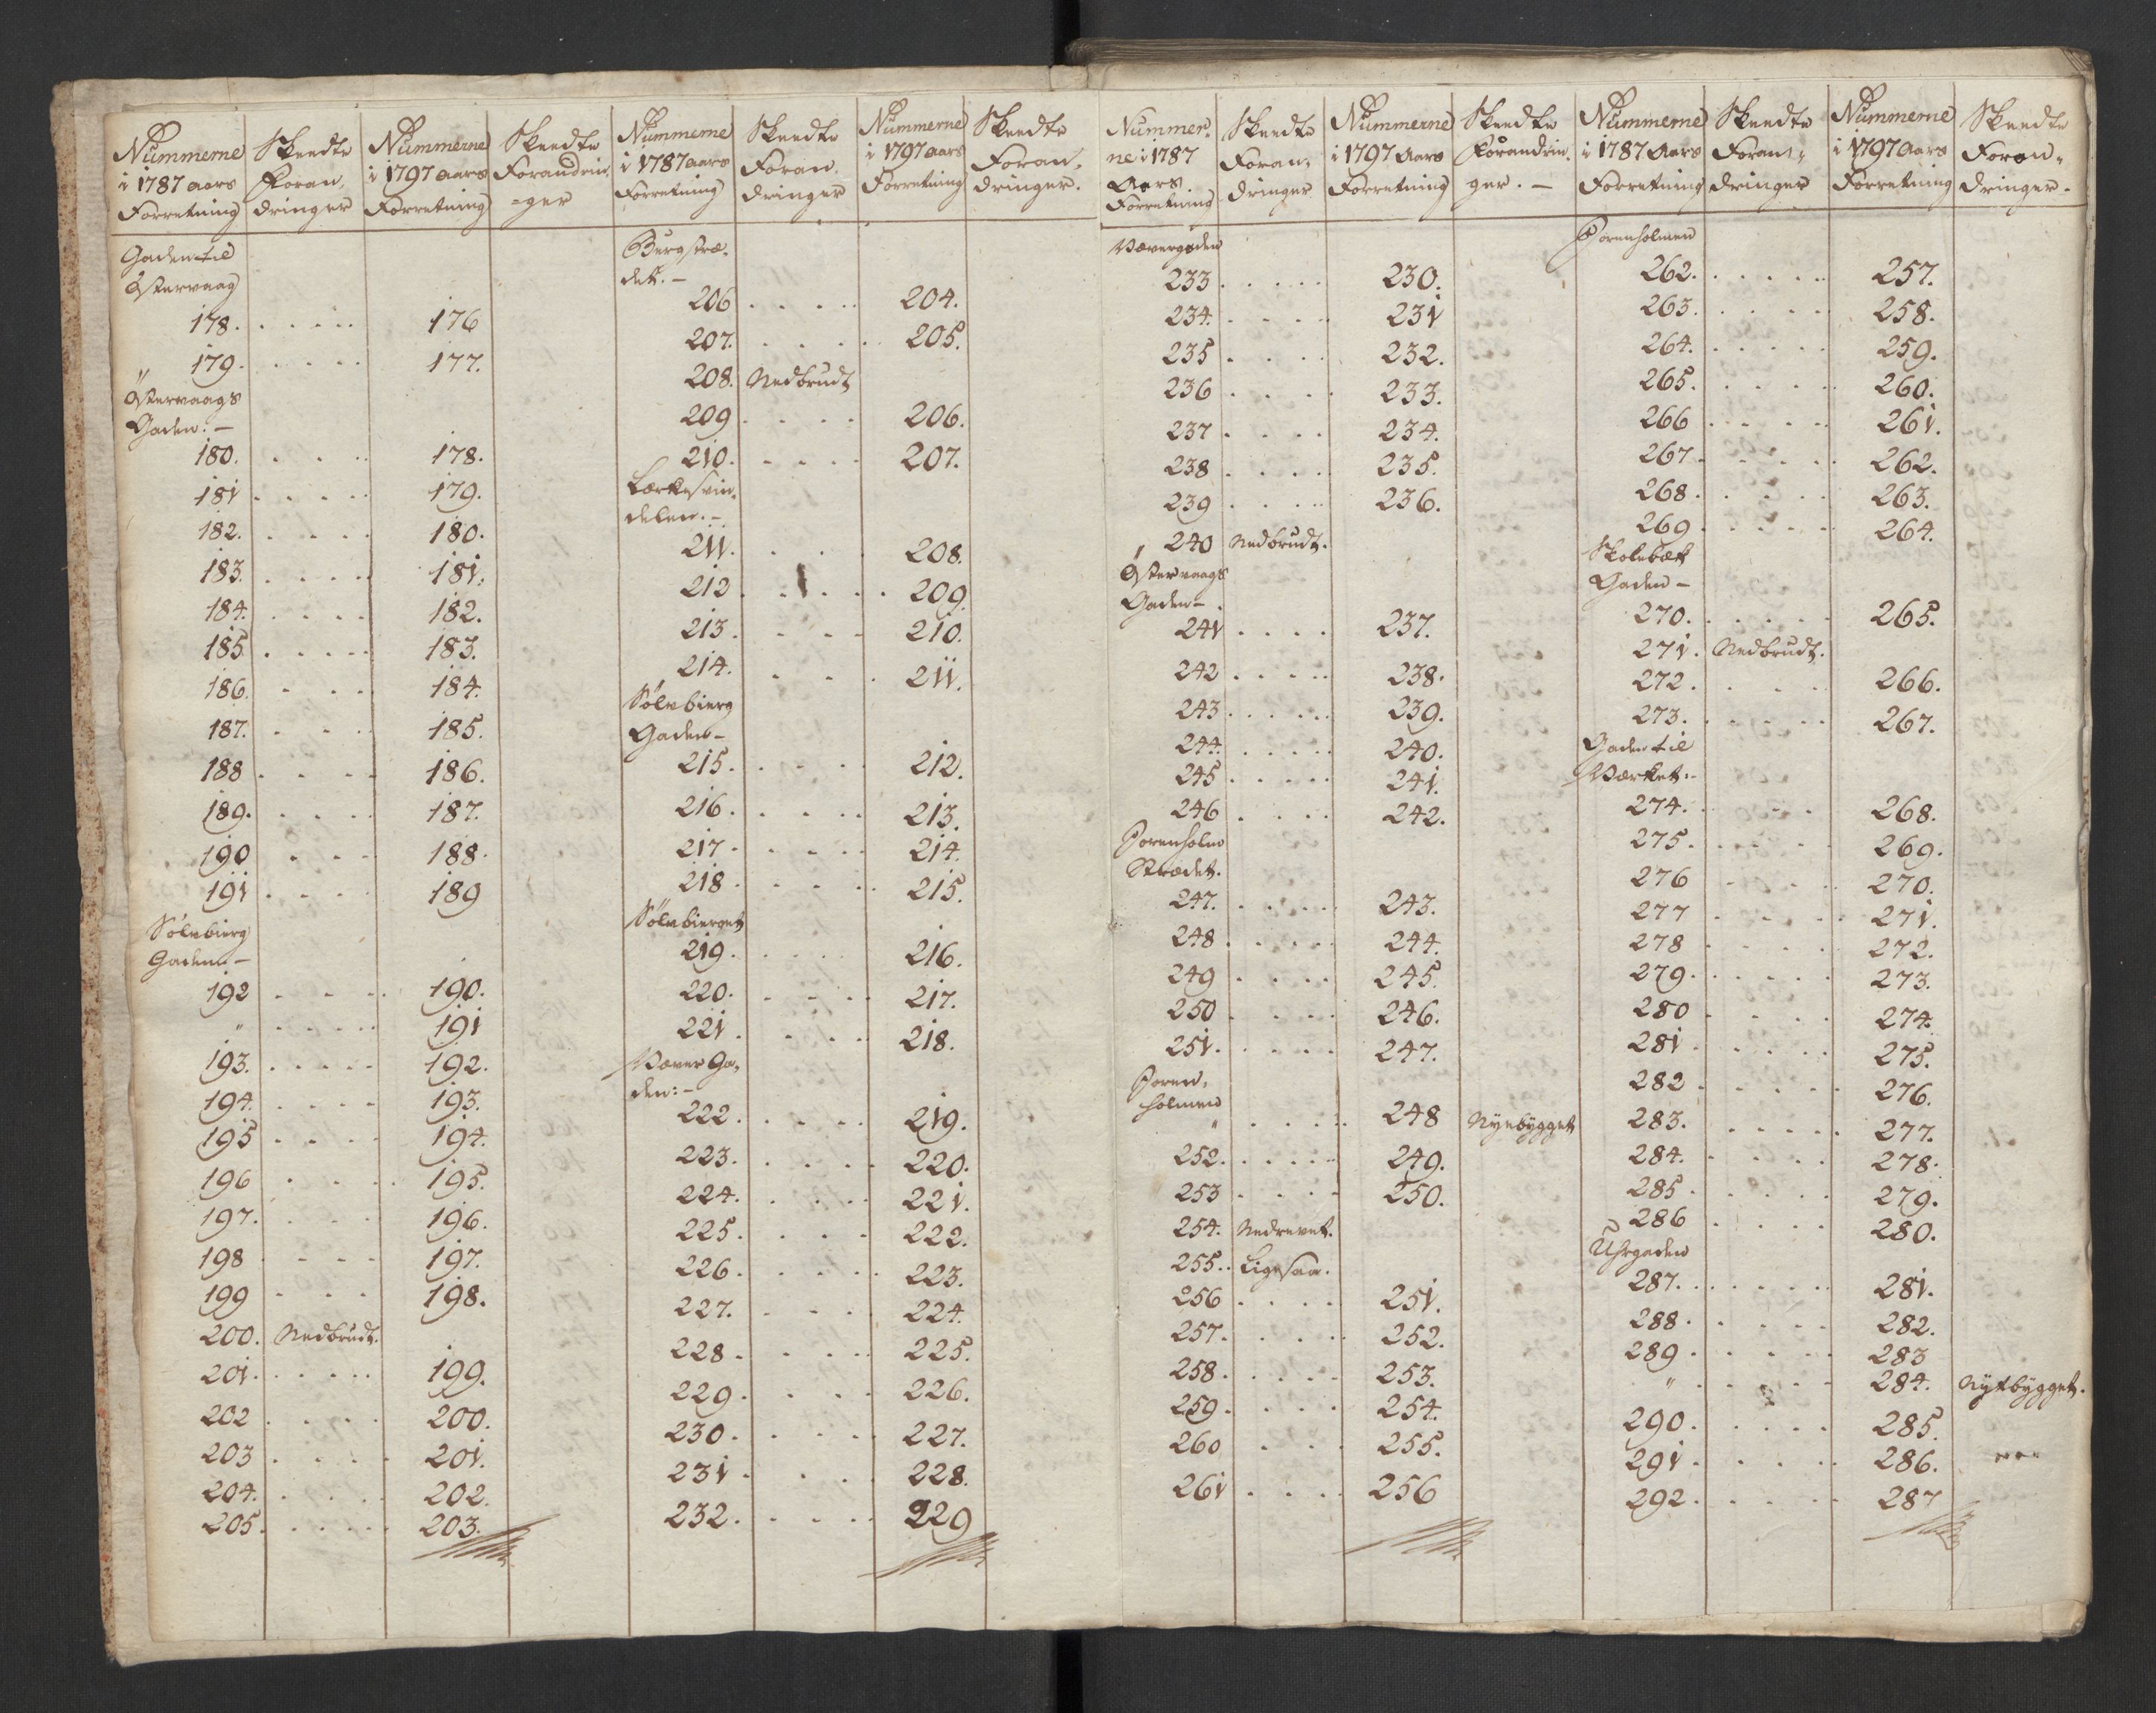 Nummerne i 1787 aars Forretning | Skeedte Foran, dringer | Nummerne i 1797 aars Forretning | Skeedte Forandrin, =ger
Gaden til
Østervaag
178. . . . . . 176
179. . . . . . 177.
Østervaags
Gaden. —
180. . . . . 178.
181 . . . . . 179.
182. . . . . 180.
183. . . . . 181.
184. . . . . 182.
185 . . . . . 183.
186. . . . . 184.
187. . . . . 185.
188 . . . . . 186.
189. . . . . 187.
190 . . . . 188.
191 . . . . 189
Sølvbierg
Gaden —
192 . . . . 190.
" . . . . . 191
193. . . . . . 192.
194. . . . . 193.
195 . . . . 194.
196 . . . . 195.
197. . . . . 196.
198 . . . . 197.
199 . . . 198.
200. Nedbrudt.
201. . . . . . 199.
202 . . . . 200.
203 . . . . 201.
204. . . . . 202.
205. . . . . . 203.
Nummerne i 1787 aars Forretning | Skeedte Foran, dringer | Nummerne i 1797 aars Forretning | Skeedte Foran, dringer.
Bergstræ,
det. —
206 . . . . . 204.
207. . . . . 205.
208. Nedbrudt
209 . . . . 206.
210. . . . . 207.
Lærkesvin,
delen. —
211. . . . 208.
212 . . . . . 209.
213. . . . 210.
214. . . . 211.
Sølvbierg
Gaden —
215. . . . . 212.
216. . . . . 213.
217 . . . . . 214.
218. . . . . 215.
Sølvbierget
219. . . . . 216.
220. . . . . 217.
221. . . . . 218.
Wæver Ga,
den: —
222. . . . . 219.
223. . . . . 220.
224. . . . . 221.
225. . . . . 222.
226. . . . . 223.
227. . . . . 224.
228. . . . . 225.
229. . . . . 226.
230. . . . . 227.
231 . . . . 228.
232. . . . . 229
Nummer, ne i 1787 Aars Forretning | Skeedte Foran, dringer | Nummerne i 1797 Aars Forretning | Skeedte Forandrin, ger. —
Wævergaden
233 . . . . . 230.
234. . . . . 231
235 . . . . 232.
236 . . . . 233.
237 . . . . 234.
238 . . . . 235.
239 . . . . 236.
240 Nedbrudt.
Østervaags
Gaden —.
241 . . . . 237.
242 . . . . . 238.
243 . . . . . 239.
244. . . . . 240.
245 . . . . . 241.
246 . . . . 242.
Porenholm
Strædet.
247. . . . . 243.
248 . . . . . 244.
249 . . . . 245.
250 . . . . 246.
251. . . . . 247.
Poren,
holmen
" . . . . . 248 Nyebygget
252. . . . . . 249.
253 . . . . 250.
254. Nedrevet.
255. Ligesaa.
256 . . . . 251.
257. . . . . 252.
258. . . . . 253.
259. . . . . 254.
260 . . . 255.
261 . . . . 256
Nummerne i 1787 Aars Forretning | Skeedte Foran, dringer | Nummerne i 1797 Aars Forretning | Skeedte Foran, dringer.
Porenholmen
262. . . . . . 257.
263. . . . . 258.
264. . . . . . 259.
265. . . . . 260.
266 . . . . . 261.
267 . . . . . 262.
268. . . . . 263.
269 . . . . . 264.
Skolebæk
Gaden —
270. . . . . . 265.
271. Nedbrudt.
272. . . . . 266.
273. . . . . . 267.
Gaden til
Værket: —
274. . . . . 268.
275. . . . . . 269.
276 . . . . 270.
277 . . . . . 271.
278 . . . . . 272.
279. . . . . . 273.
280 . . . . 274.
281 . . . . . 275.
282. . . . . 276.
283. . . . . . 277.
284. . . . . 278.
285. . . . . 279.
286 . . . . 280.
Uhrgaden
287. . . . . . 281.
288. . . . . 282.
289. . . . . 283
" . . . . . 284. Nyebygget.
290. . . . . 285.
291. . . . . 286.
292. . . . . 287